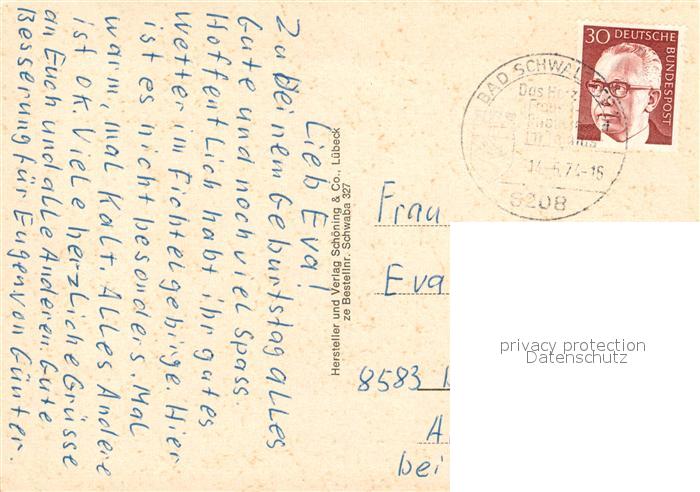 Lieb Eva!
Zu Deinem Geburtstag alles
Gute und noch viel Spass.
Hoffentlich habt ihr gutes
Wetter im Fichtelgebirge. Hier
ist es nicht besonders. Mal
warm, mal kalt. Alles Andere
ist OK. Viele herzliche Grüsse
an Euch und alle Anderen. Gute
Besserung für Eugen von Günter.
Hersteller und Verlag Schöning & Co., Lübeck
ze Bestellnr. Schwaba 327
30 DEUTSCHE
BUNDESPOST
BAD SCHWAL
Das Herz
14.-6.74-16
6208
Frau
Eva
8583
A
bei
privacy protection
Datenschutz